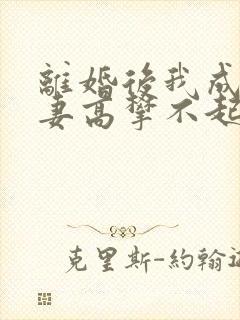 離婚後我成
妻高攀不起
克里斯-約翰遜